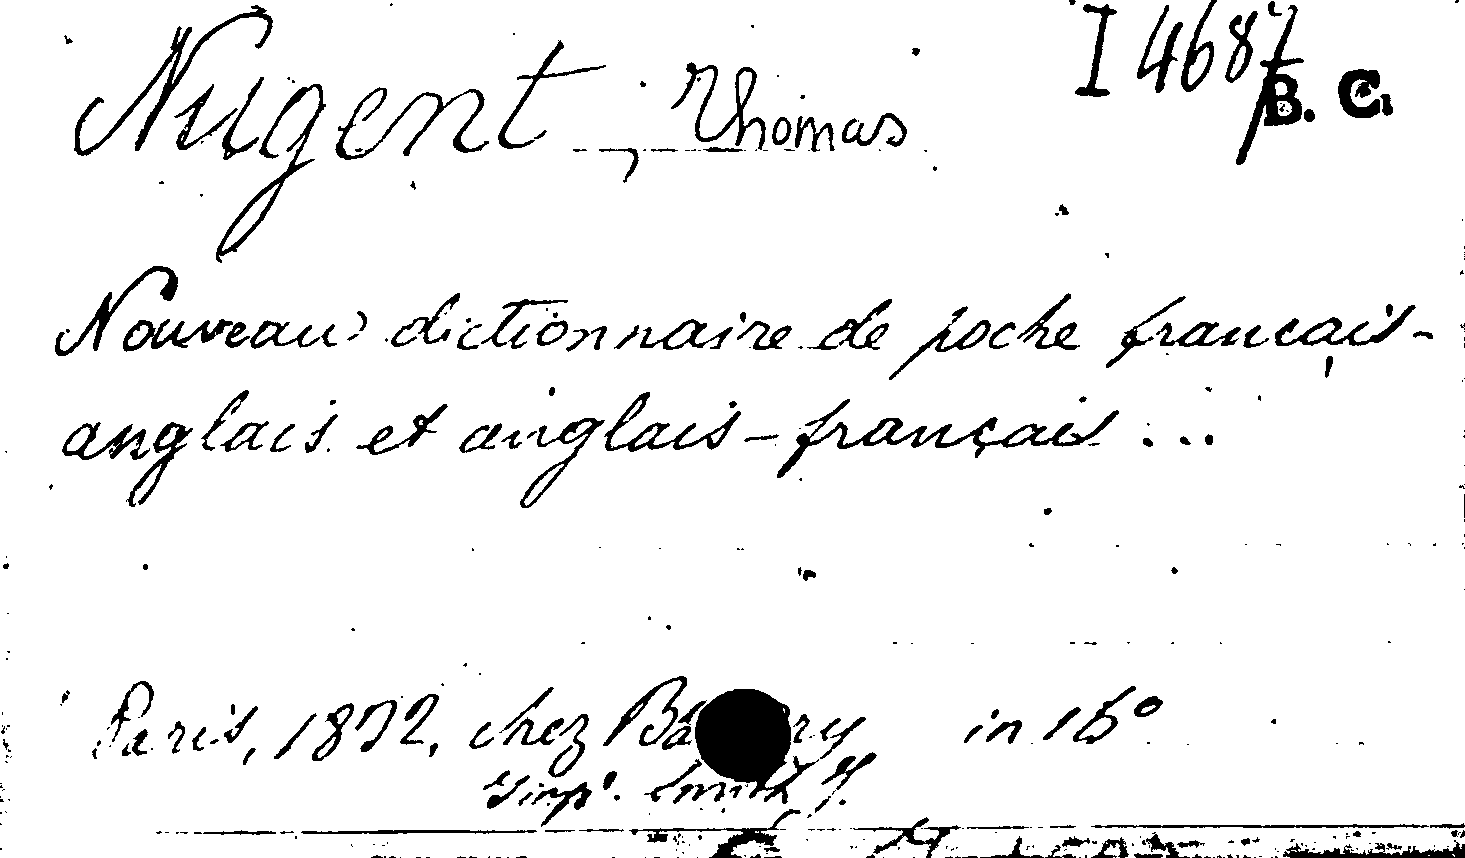 I 4687
B. C.
Nugent, Thomas
Nouveau dictionnaire de poche français-
anglais et anglais-français ...
Paris, 1832, chez Ba ry in 16°
Imp. Smith, J.